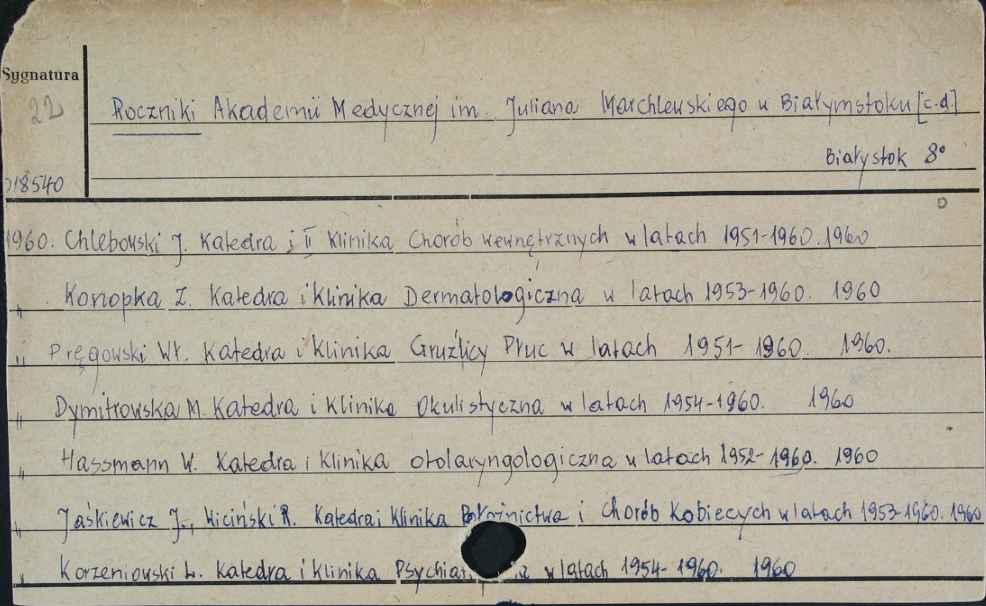 Sygnatura
22
Roczniki Akademii Medycznej im. Juliana Marchlewskiego w Białymstoku [c.d]
Białystok 8°
18540
1960. Chlebowski J. Katedra i II Klinika Chorób wewnętrznych w latach 1951-1960. 1960
" Konopka Z. Katedra i Klinika Dermatologiczna w latach 1953-1960. 1960
" Pręgowski Wł. Katedra i Klinika Gruźlicy Płuc w latach 1951-1960. 1960.
" Dymitrowska M. Katedra i Klinika Okulistyczna w latach 1954-1960. 1960
" Hassmann W. Katedra i Klinika otolaryngologiczna w latach 1952-1960. 1960
" Jaśkiewicz J., Wiciński R. Katedra i Klinika Położnictwa i Chorób Kobiecych w latach 1953-1960. 1960
" Korzeniowski L. Katedra i Klinika w latach 1954-1960. 1960